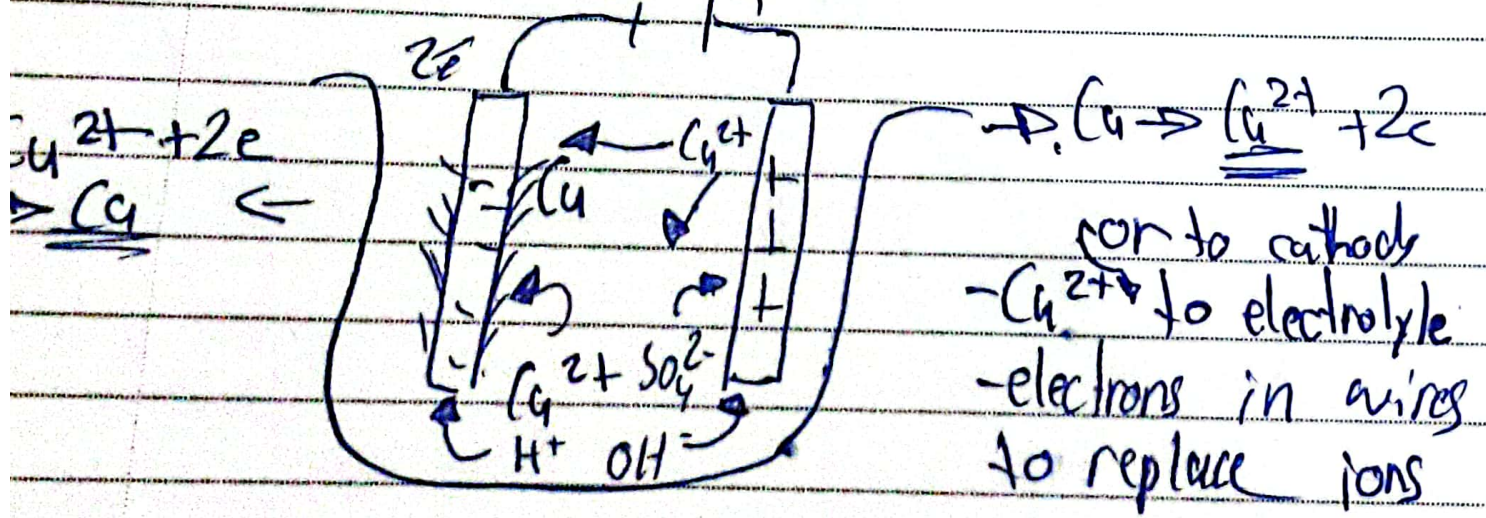 2e
Cu²⁺ + 2e
→ Cu ←
Cu²⁺
Cu
- - - -
+ + +
Cu²⁺ SO₄²⁻
H⁺ OH⁻
→ Cu → Cu²⁺ + 2e
or to cathody
-Cu²⁺ to electrolyle
-electrons in wires
to replace ions